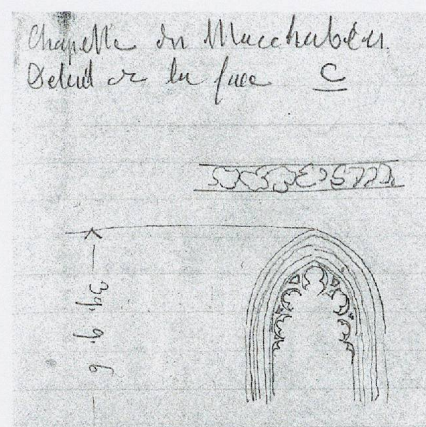 Chapelle des Macchabées.
Détail de la face C
39. 9. 6